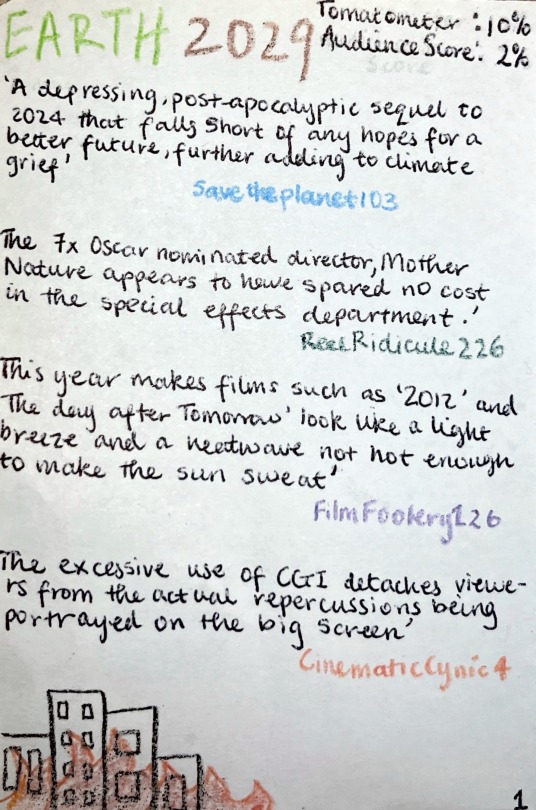 EARTH 2029
Tomatometer : 10%
Audience Score : 2%
'A depressing, post-apocalyptic sequel to
2024 that falls short of any hopes for a
better future, further adding to climate
grief'
Savetheplanet103
The 7x Oscar nominated director, Mother
Nature appears to have spared no cost
in the special effects department.'
ReelRidicule226
This year makes films such as '2012' and
The day after Tomorrow' look like a light
breeze and a heatwave not hot enough
to make the sun sweat'
FilmFoolery126
The excessive use of CGI detaches viewe-
rs from the actual repercussions being
portrayed on the big screen'
CinematicCynic4
1